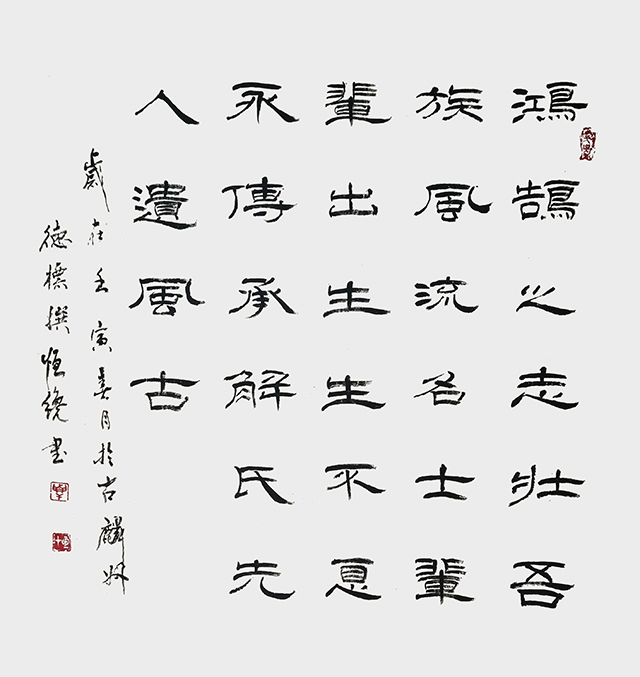 鴻鵠之志壯吾
族風流名士輩
輩出生生不息
永傳承解氏先
人遺風古
歲在壬寅春月於古麟州
德標撰恒書